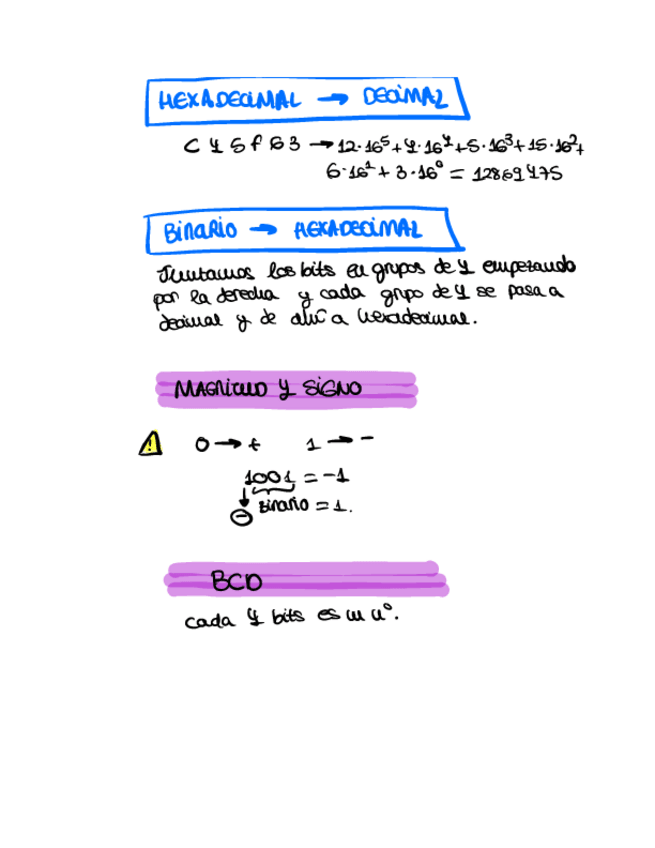 HEXADECIMAL → DECIMAL
C 4 5 F 6 3 → 12·16⁵ + 4·16⁴ + 5·16³ + 15·16² +
6·16¹ + 3·16⁰ = 12869475
BINARIO → HEXADECIMAL
Juntamos los bits en grupos de 4 empezando
por la derecha y cada grupo de 4 se pasa a
decimal y de ahí a hexadecimal.
MAGNITUD Y SIGNO
0 → + 1 → -
1001 = -1
⊖ BINARIO = 1.
BCD
cada 4 bits es un nº.